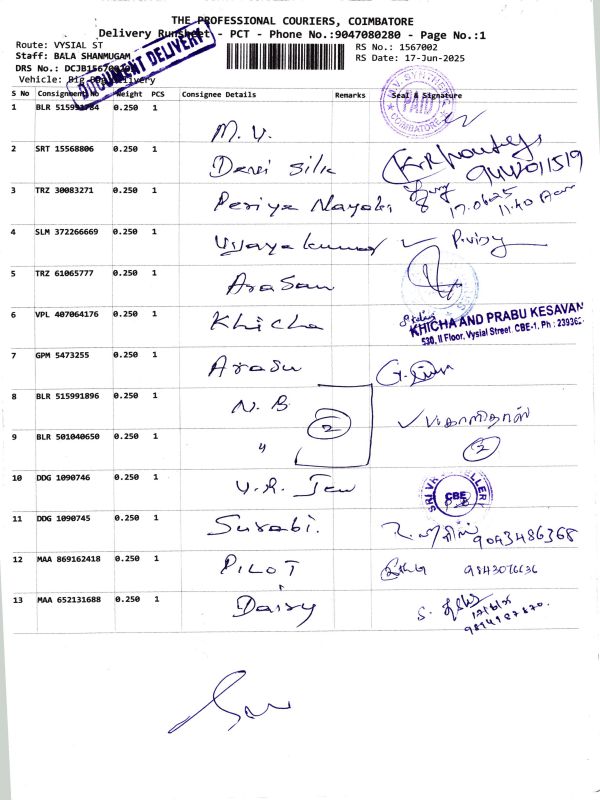 THE PROFESSIONAL COURIERS, COIMBATORE
Delivery RunSheet - PCT - Phone No.:9047080280 - Page No.:1
Route: VYSIAL ST
RS No.: 1567002
Staff: BALA SHANMUGAM
RS Date: 17-Jun-2025
DRS No.:
Vehicle:
DOCUMENT DELIVERY
S No Consignment No Weight PCS Consignee Details Remarks Seal & Signature
1 BLR 0.250 1 M. V.
PAID
COIMBATORE
2 SRT 15568806 0.250 1 Devi Silk
9442011519
3 TRZ 30083271 0.250 1 Periya Nayaki 17.06.25
11.40 Am
4 SLM 372266669 0.250 1 Vijayakumar P.vijay
5 TRZ 61065777 0.250 1 Arasan
6 VPL 407064176 0.250 1 Khicha
KHICHA AND PRABU KESAVAN
530, II Floor, Vysial Street, CBE-1, Ph : 239362
7 GPM 5473255 0.250 1 Arasu
8 BLR 515991896 0.250 1 N. B
2
9 BLR 501040650 0.250 1 "
2
10 DDG 1090746 0.250 1 V. R. Jew
SRI VR JEWELLERY
CBE
11 DDG 1090745 0.250 1 Surabi. 9043486368
12 MAA 869162418 0.250 1 PILOT
13 MAA 652131688 0.250 1 Daisy